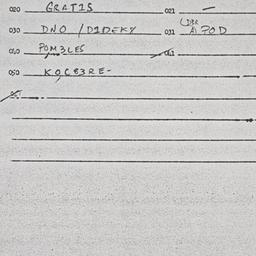 020 GRATIS 021 —
030 DNO / DIDEKY 031 AI POD
040 POMZLES 041
050 KOCBZRE-